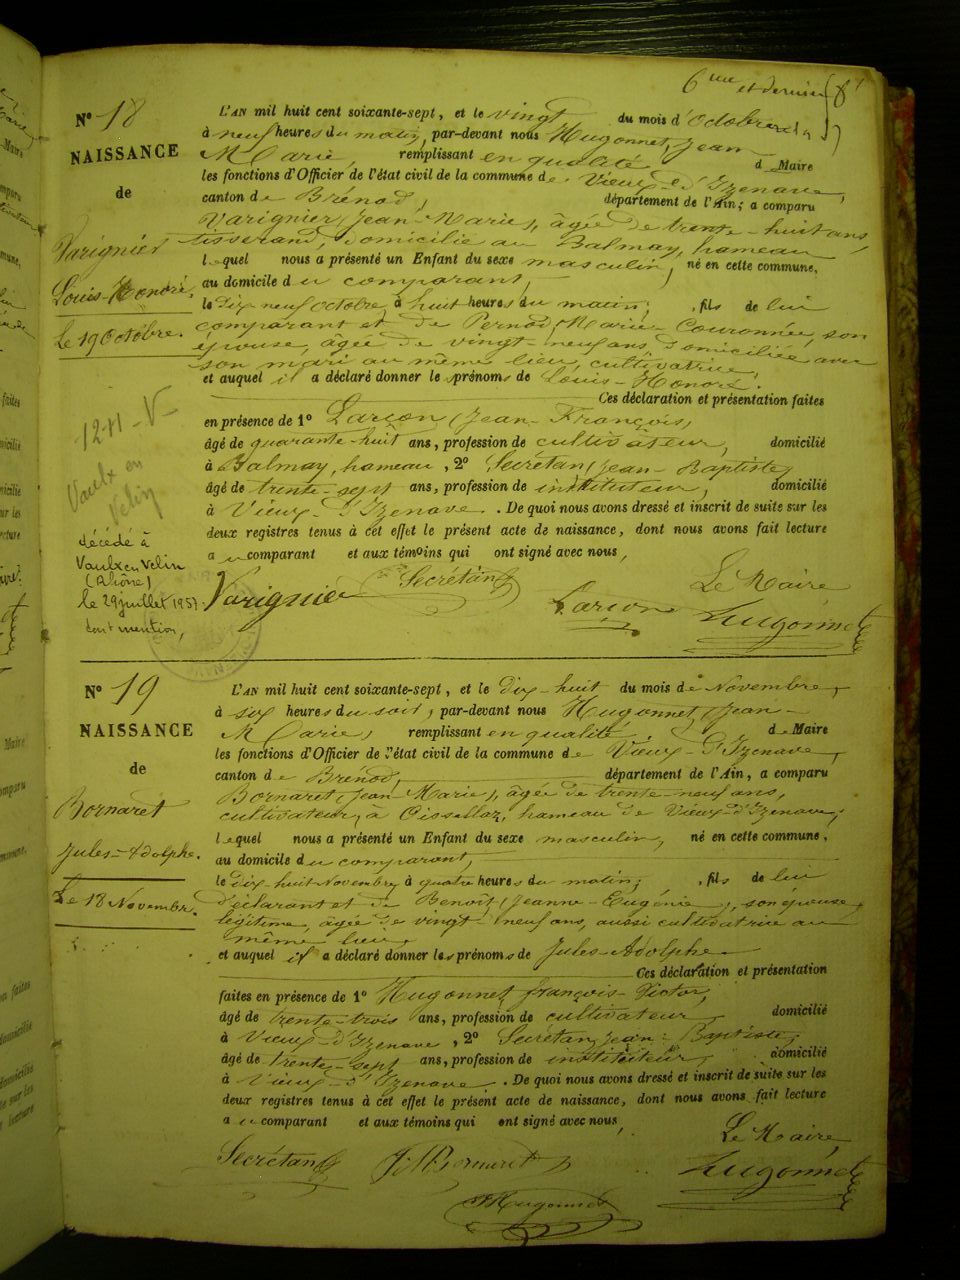 6me et dernier
N° 18
NAISSANCE
de
Varignier
Louis-Honoré.
Le 19 Octobre.
12-11-V
Vaulx en
Velin
décédé à
Vaulx en Velin
(Rhône)
le 29 juillet 1957.
dont mention,
L'AN mil huit cent soixante-sept, et le vingt du mois d'Octobre
à neuf heures du matin, par-devant nous Hugonnet, Jean
Marie, remplissant en qualité d Maire
les fonctions d'Officier de l'état civil de la commune de Vieux-d'Izenave,
canton de Brénod, département de l'Ain; a comparu
Varignier (Jean-Marie), âgée de trente-huit ans,
tisserand, domicilié au Balmay, hameau
lequel nous a présenté un Enfant du sexe masculin, né en cette commune,
au domicile du comparant,
le dix neuf octobre, à huit heures du matin; , fils de lui
comparant et de Pernod, Marie-Couronnée, son
épouse, âgée de vingt-neuf ans, domiciliée avec
son mari au même lieu, cultivatrice,
et auquel il a déclaré donner les prénoms de Louis-Honoré.
Ces déclaration et présentation faites
en présence de 1° Larçon (Jean-François),
âgé de quarante-huit ans, profession de cultivateur, domicilié
à Balmay, hameau , 2° Secrétan, Jean-Baptiste,
âgé de trente-sept ans, profession de instituteur, domicilié
à Vieux-d'Izenave . De quoi nous avons dressé et inscrit de suite sur les
deux registres tenus à cet effet le présent acte de naissance, dont nous avons fait lecture
au comparant et aux témoins qui ont signé avec nous,
Le Maire,
Varignier Secrétan Larçon Hugonnet
N° 19
NAISSANCE
de
Bornaret
Jules-Adolphe.
Le 18 Novembre.
L'AN mil huit cent soixante-sept, et le dix-huit du mois de Novembre,
à six heures du soir, par-devant nous Hugonnet, (Jean-
Marie) remplissant en qualité de Maire
les fonctions d'Officier de l'état civil de la commune de Vieux-d'Izenave,
canton de Brénod, département de l'Ain, a comparu
Bornaret (Jean Marie), âgée de trente-neuf ans,
cultivateur, à Cisselloz, hameau de Vieux-d'Izenave,
lequel nous a présenté un Enfant du sexe masculin, né en cette commune,
au domicile du comparant,
le dix-huit Novembre, à quatre heures du matin; , fils de lui
déclarant et de Benoît (Jeanne-Eugénie), son épouse
légitime, âgée de vingt-neuf ans, aussi cultivatrice au
même lieu,
et auquel il a déclaré donner les prénoms de Jules-Adolphe
Ces déclaration et présentation
faites en présence de 1° Hugonnet, françois-Victor,
âgé de trente-trois ans, profession de cultivateur, domicilié
à Vieux-d'Izenave , 2° Secrétan, Jean-Baptiste,
âgé de trente-sept ans, profession de instituteur, domicilié
à Vieux-d'Izenave . De quoi nous avons dressé et inscrit de suite sur les
deux registres tenus à cet effet le présent acte de naissance, dont nous avons fait lecture
au comparant et aux témoins qui ont signé avec nous,
Le Maire,
Secrétan JM Bornaret Hugonnet
Hugonnet